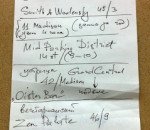 Smith & Wollensky 49/3
11 Madison
Mid Packing District
14 st (9-10)
устрицы Grand Central
42/Madison
Oyster Bar
вегетарианский
Zen Palate 46/9